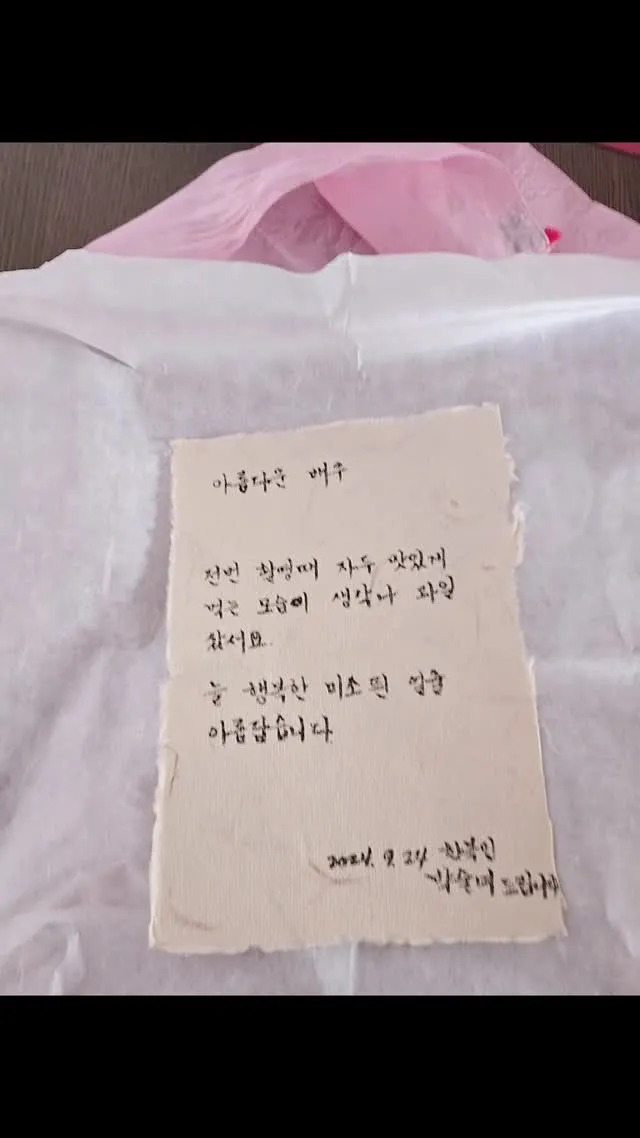 아름다운 배우
전번 촬영때 자두 맛있게
먹는 모습이 생각나 과일
샀서요.
늘 행복한 미소 띈
아름답습니다
2024. 9. 24 한국인
드립니다